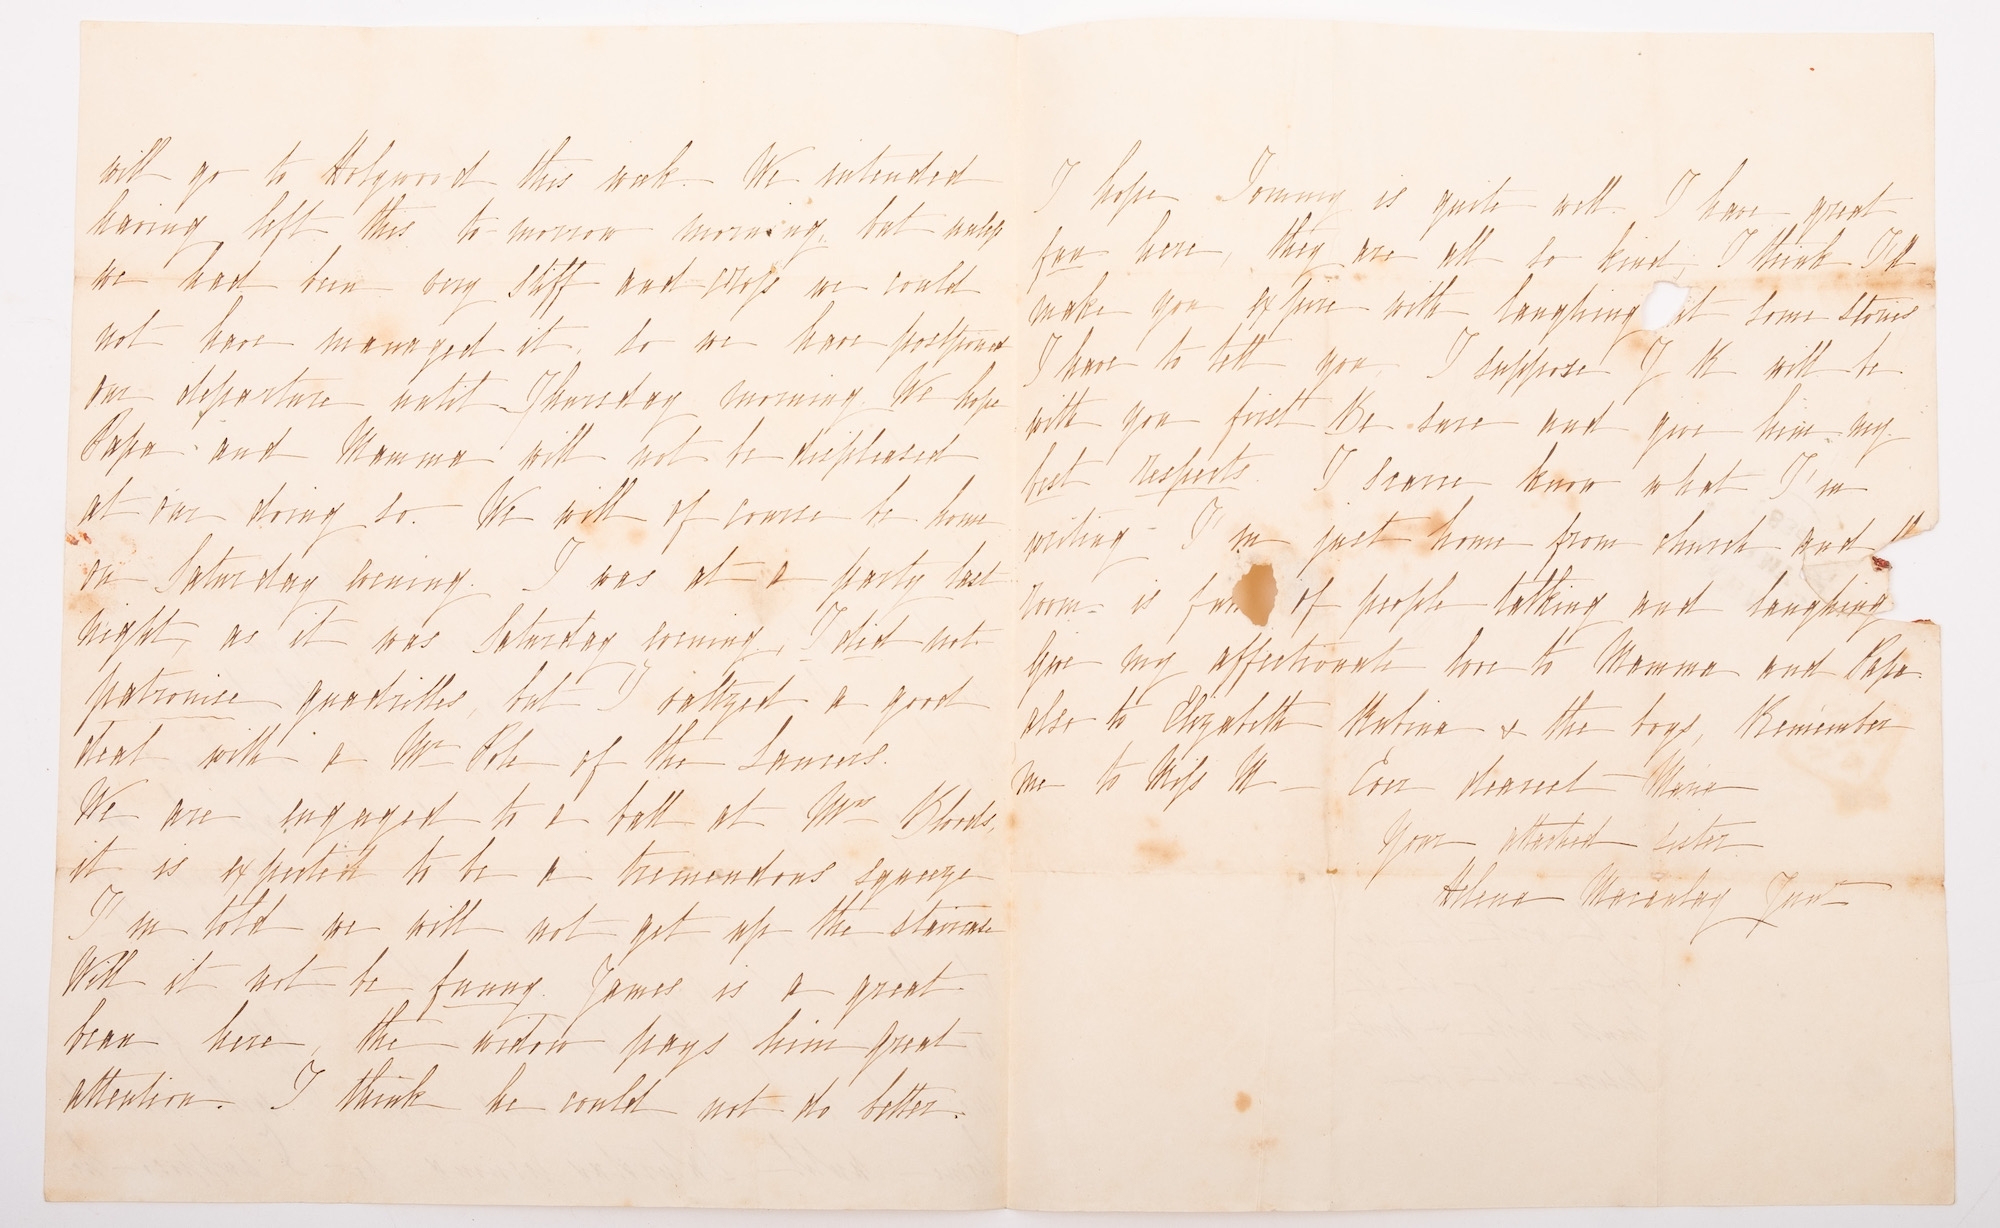 will go to Holywood this week. We intended
having left this to morrow morning, but unless
we had been very stiff and cross we could
not have managed it, so we have postponed
our departure until Thursday morning. We hope
Papa and Mamma will not be displeased
at our doing so. We will of course be home
on Saturday evening. I was at a party last
night, as it was Saturday evening, I did not
patronise quadrilles, but I valtzed a good
deal with a Mr Pole of the Lancers.
We are engaged to a ball at Mrs
it is expected to be a tremendous squeeze
I'm told we will not get up the staircase
Will it not be funny. James is a great
beau here, the widow pays him great
attention. I think he could not do better.
I hope Tommy is quite well. I have great
fun here, they are all so kind, I think I'll
make you expire with laughing at some stories
I have to tell you. I suppose J K will be
with you first Be sure and give him my
best respects. I scarce know what I'm
writing I'm just home from church and
room is full of people talking and laughing
Give my affectionate love to Mamma and Papa
also to Elizabeth Rabina & the boys, Remember
me to Miss M – Ever dearest Maria
Your attached sister
Helena Macaulay Junr